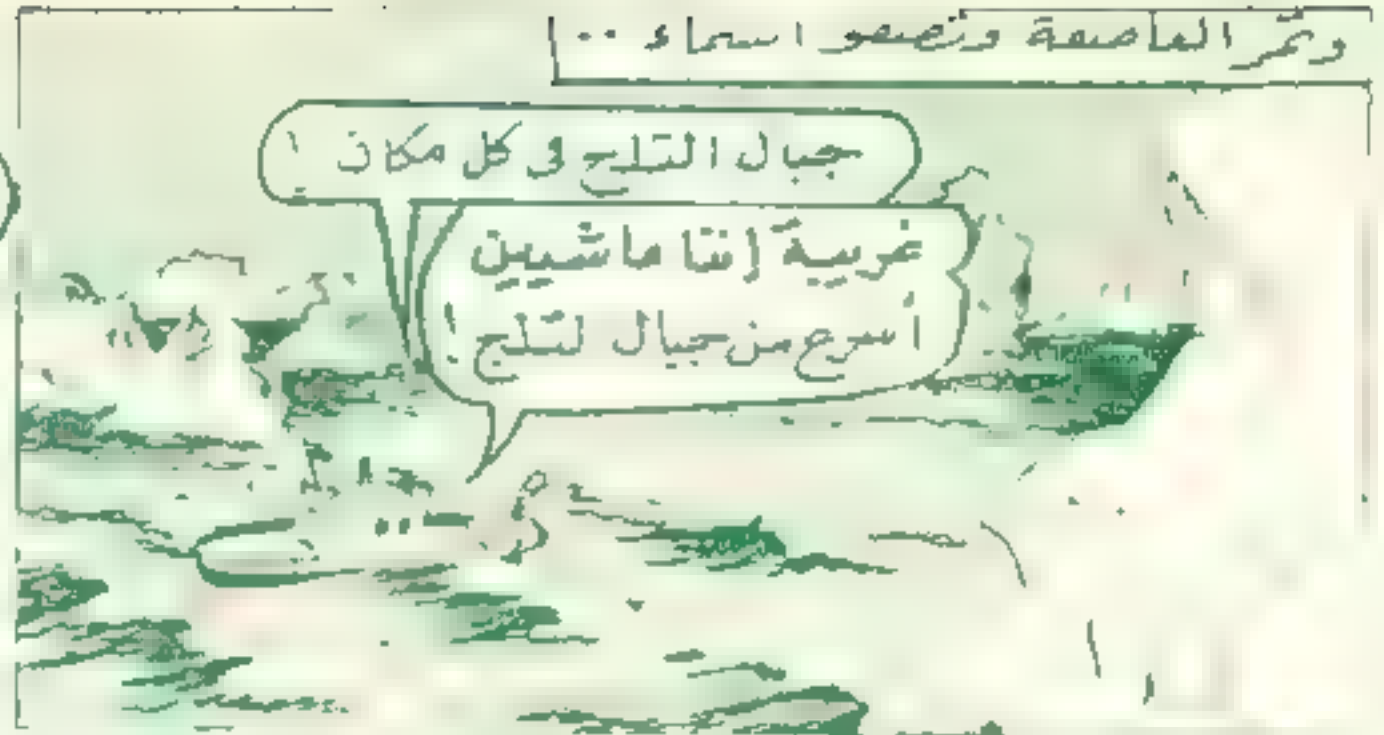 وتمر العاصفة وتصفو اسماء ..
جبال التلج فى كل مكان !
غريبة إننا ماشيين
أسرع من جبال لتلج !